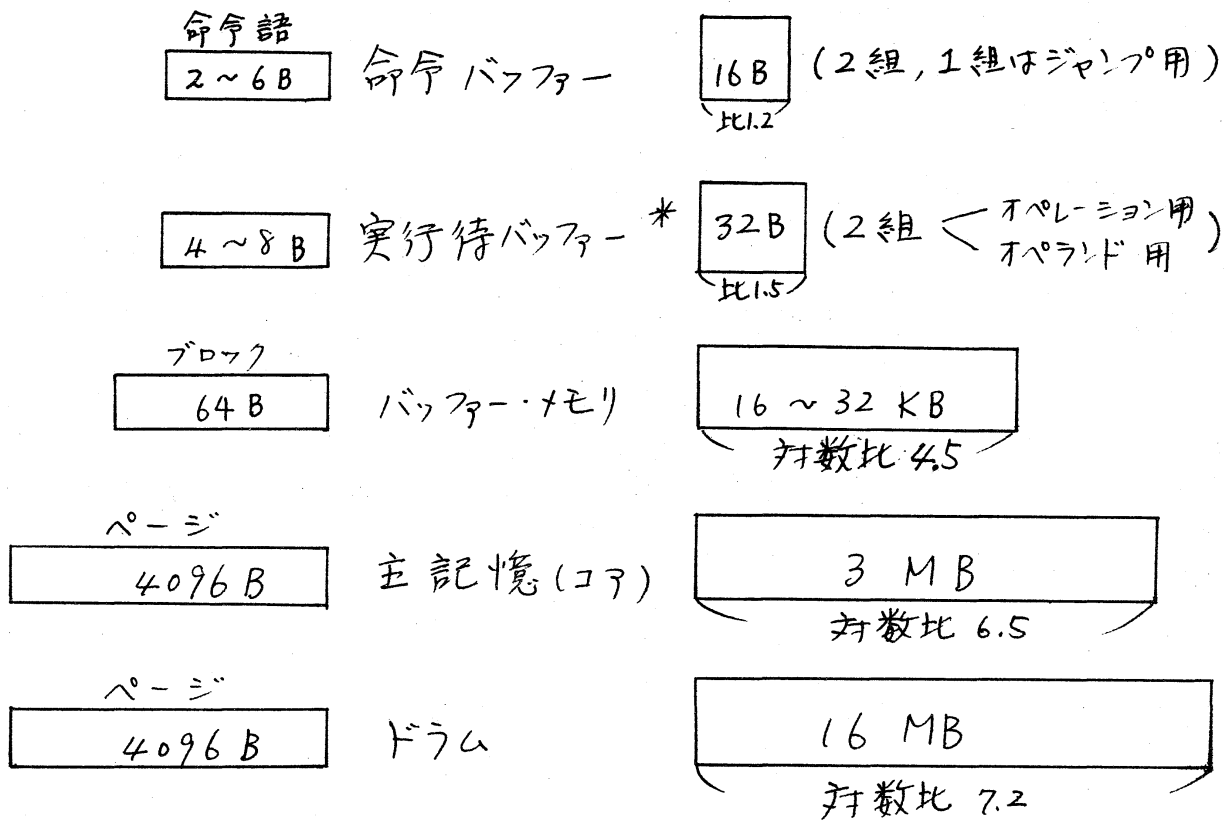 命令語
2～6B 命令バッファー 16B (2組, 1組はジャンプ用)
比1.2
4～8B 実行待バッファー * 32B (2組 < オペレーション用 オペランド用)
比1.5
ブロック
64B バッファー・メモリ 16～32KB
対数比 4.5
ページ
4096B 主記憶(コア) 3 MB
対数比 6.5
ページ
4096B ドラム 16 MB
対数比 7.2